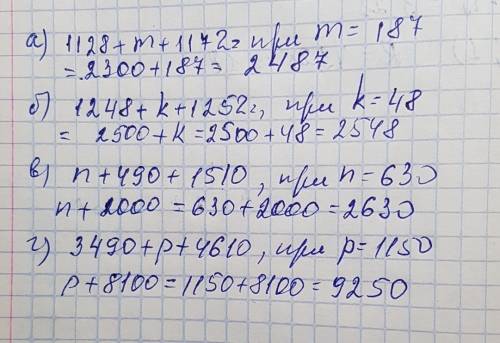 а) 1128+m+1172= при m= 187
= 2300+187= 2487
б) 1248+k+1252=, при k=48
= 2500+k=2500+48=2548
в) n+490+1510, при n=630
n+2000=630+2000=2630
г) 3490+p+4610, при p=1150
p+8100=1150+8100=9250